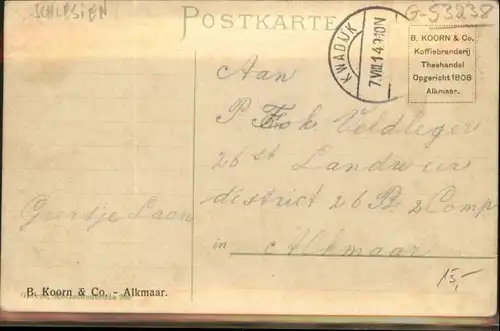 SCHLESIEN
POSTKARTE
G-53238
KWADIJK
7.VIII.14.7-10N
B. KOORN & Co.
Koffiebranderij
Theehandel
Opgericht 1808
Alkmaar.
Aan
P Kok Veldleger
26 st Landweer
district 26 2 Comp
Geertje Laan
in Alkmaar
15,-
B. Koorn & Co. - Alkmaar.